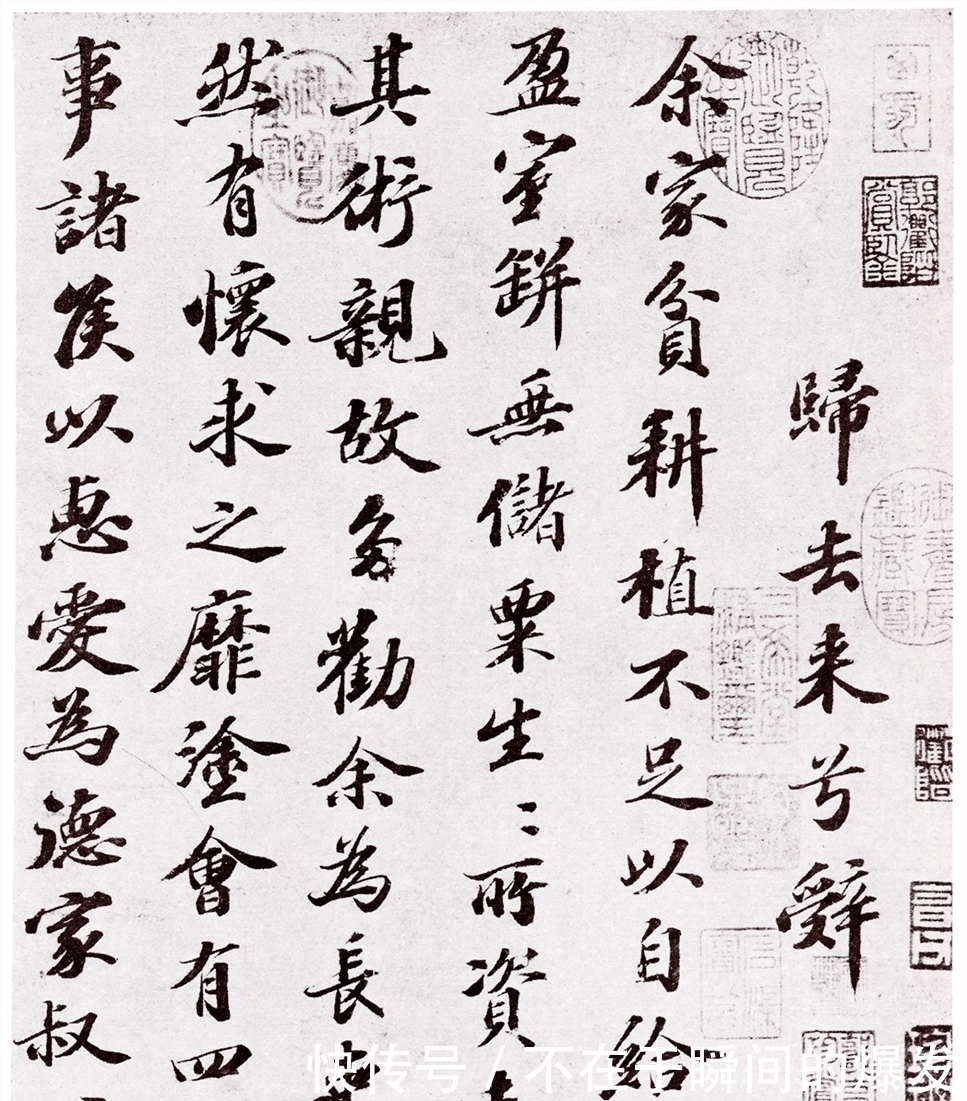 歸去来兮辭
余家貧耕植不足以自給
盈室缾無儲粟生〻所資
其術親故多勸余為長
然有懷求之靡塗會有四
事諸侯以惠愛為德家叔
快传号 / 不在于瞬间的爆发